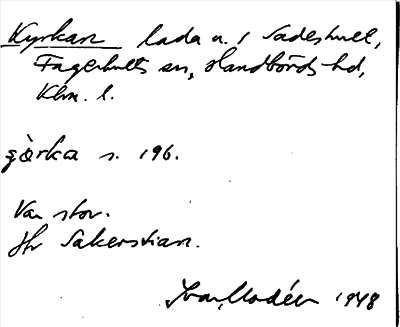 Kyrkan lada u. i Sadeshult,
Fagerhults sn, Handbörds hd,
Klm. l.
çòrka s. 196.
Var stor.
Jfr Sakerstian.
Ivar Modéer 1948